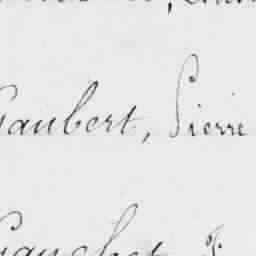 Gaubert, Pierre
Gauchet, J.